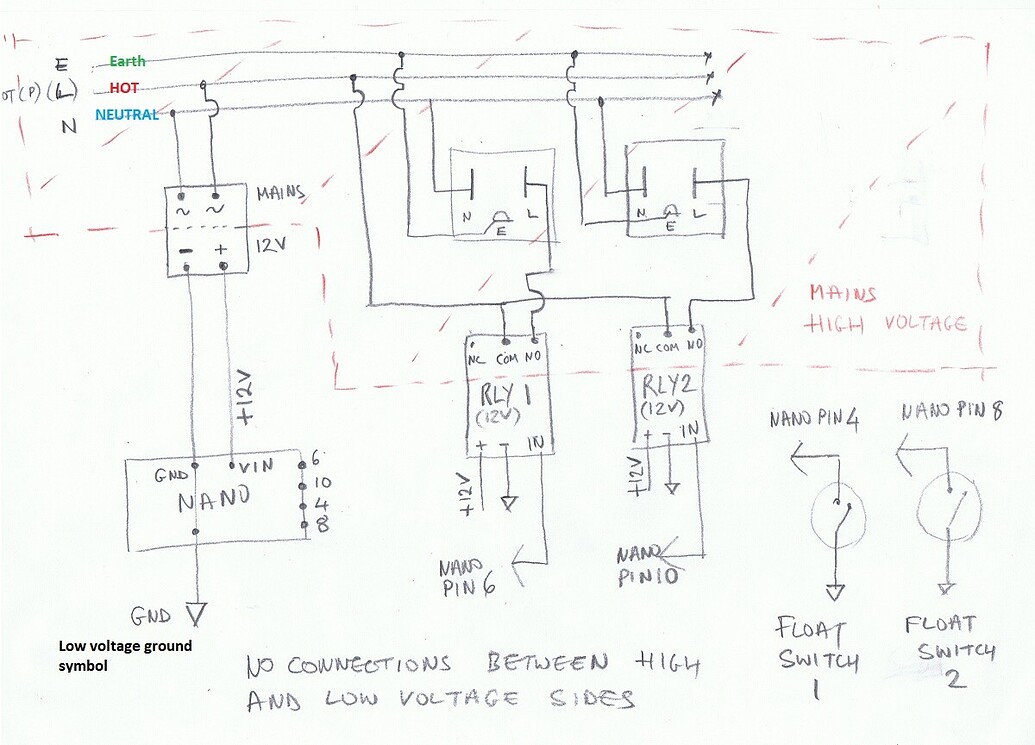 E
Earth
OT(P) (L)
HOT
N
NEUTRAL
MAINS
~ ~
- +
12V
N
E
L
N
E
L
MAINS
HIGH VOLTAGE
NC COM NO
RLY 1
(12V)
+ - IN
+12V
NC COM NO
RLY2
(12V)
+ - IN
+12V
+12V
GND
VIN
NANO
6
10
4
8
NANO
PIN 6
NANO
PIN 10
NANO PIN 4
NANO PIN 8
FLOAT
SWITCH
1
FLOAT
SWITCH
2
GND
Low voltage ground
symbol
NO CONNECTIONS BETWEEN HIGH
AND LOW VOLTAGE SIDES